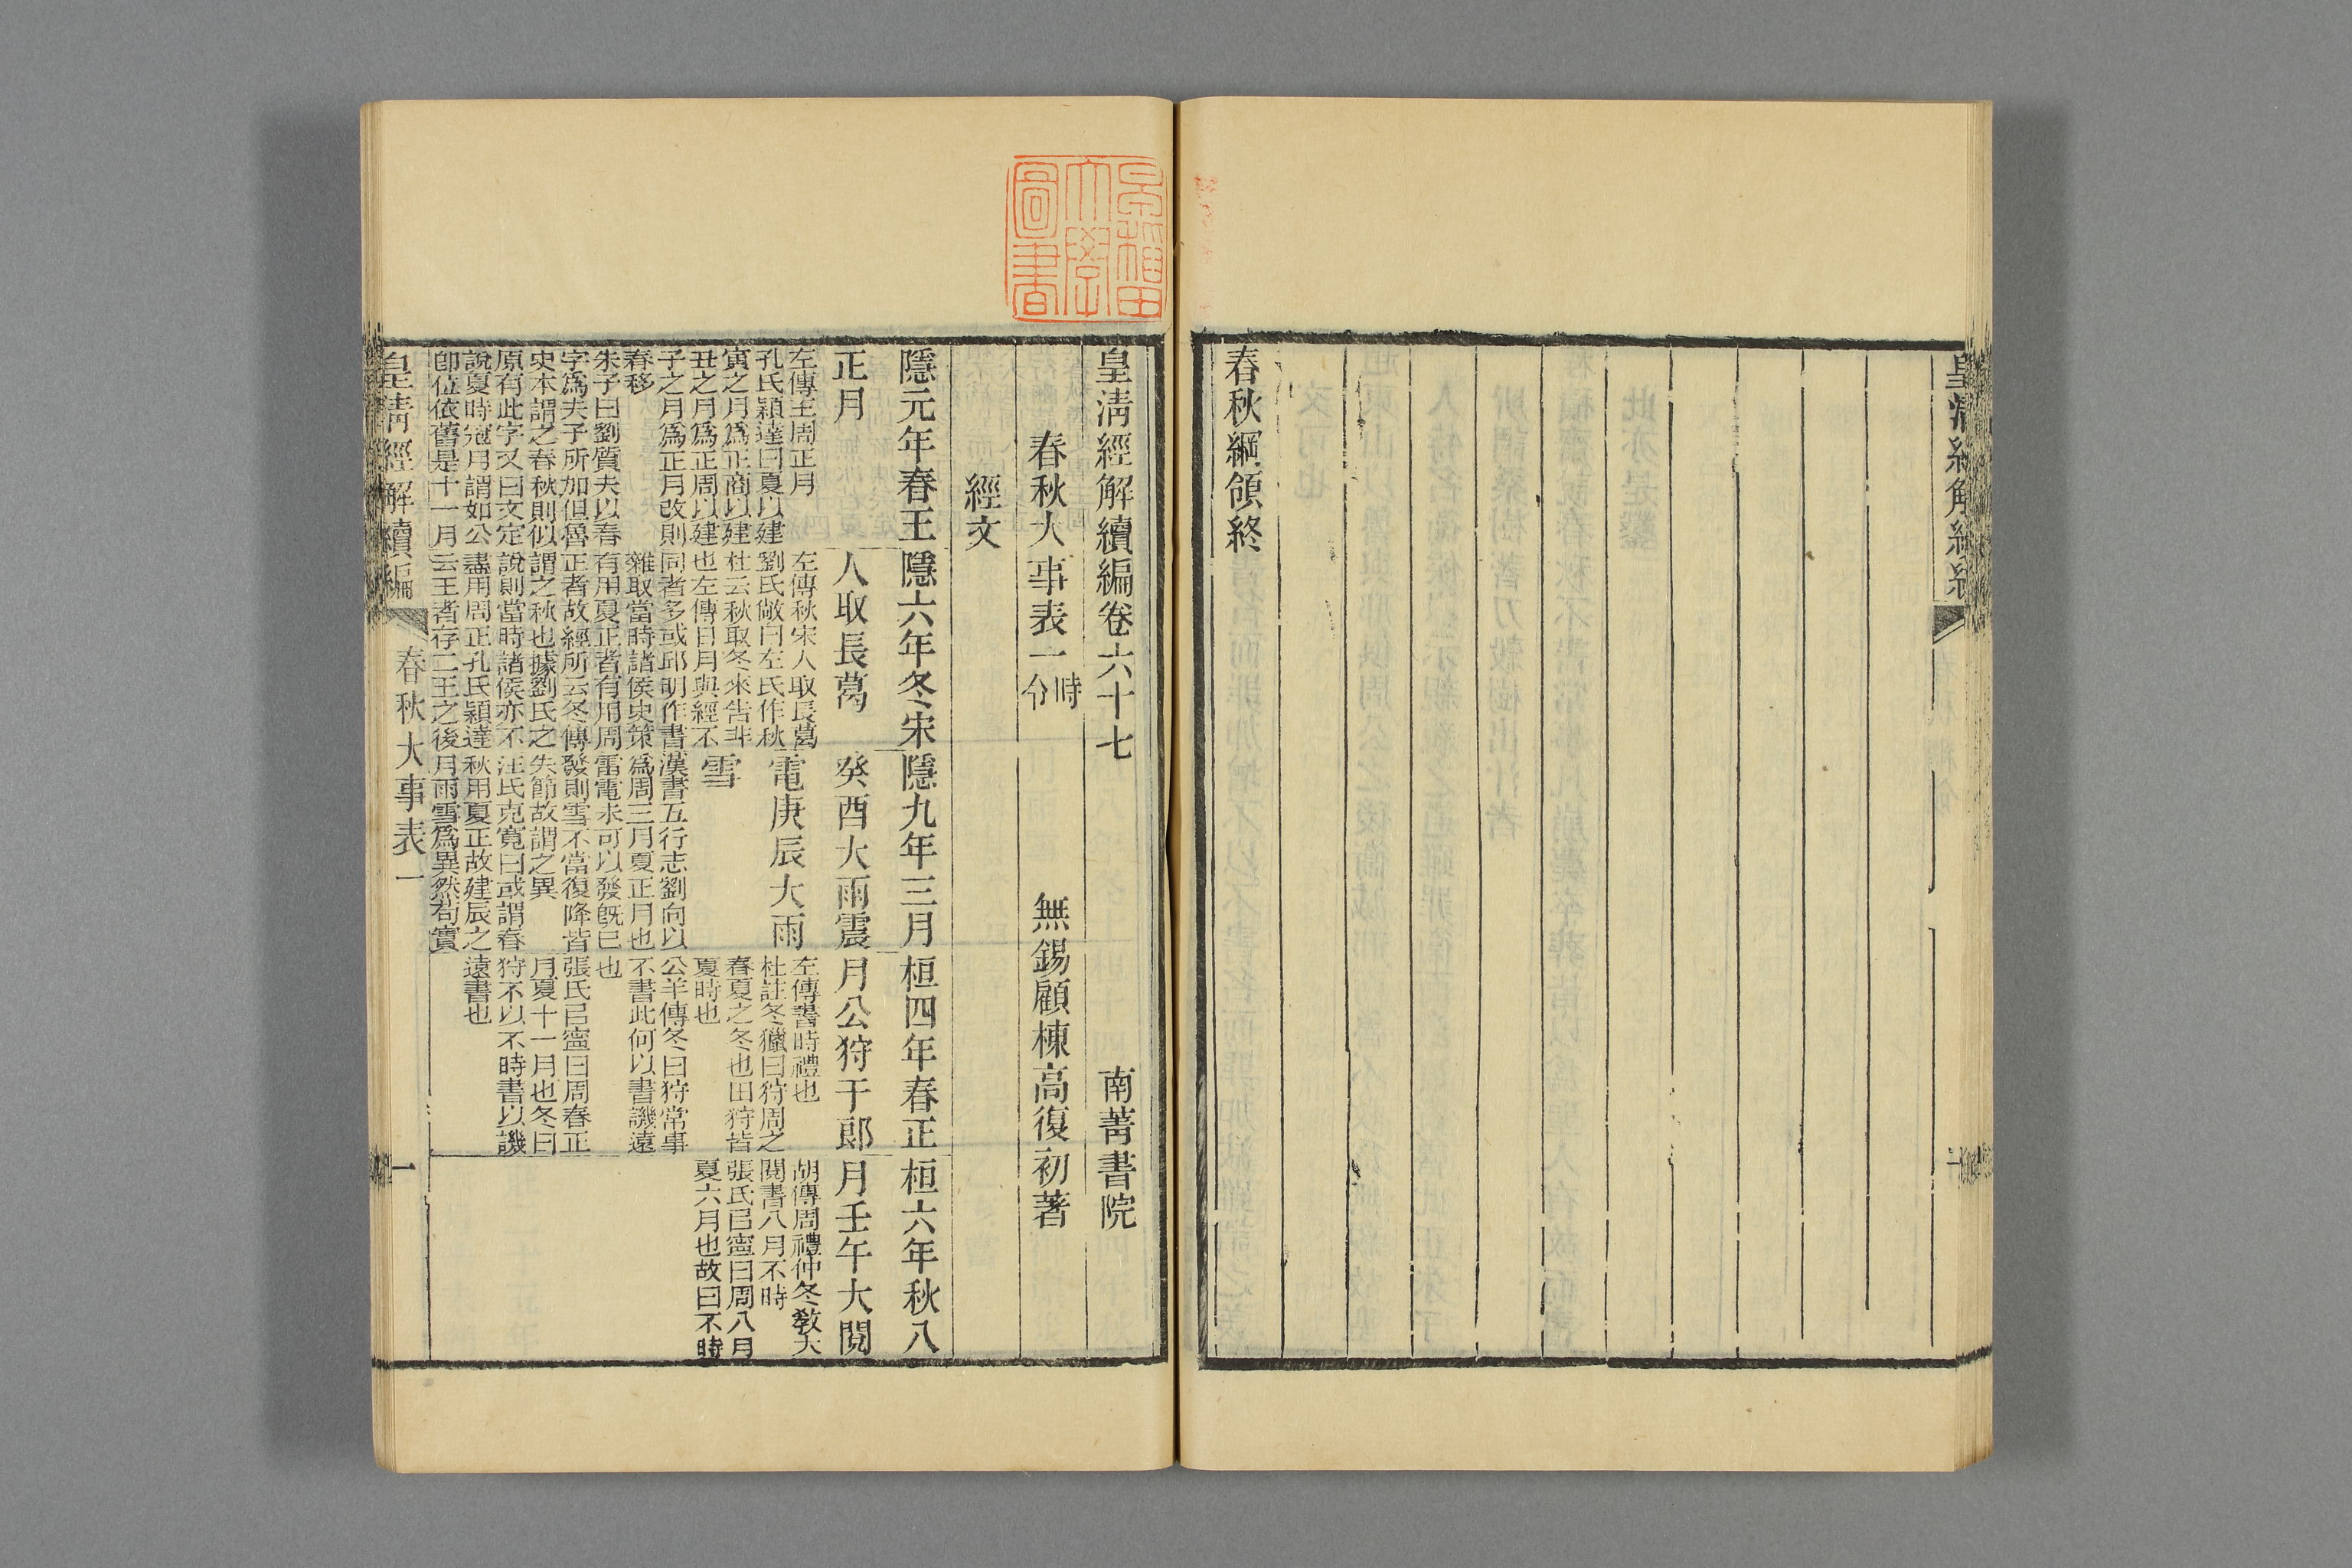 皇清經解續編
春秋綱領終
早稲田大學圖書
皇清經解續編卷六十七
南菁書院
春秋大事表一
時
令
無錫顧棟高復初著
經文
隱元年春王
正月
左傳王周正月
孔氏穎達曰夏以建
寅之月爲正商以建
丑之月爲正周以建
子之月爲正月改則
春移
朱子曰劉質夫以春
字爲夫子所加但魯
史本謂之春秋則似
原有此字又曰文定
說夏時冠月謂如公
卽位依舊是十一月
隱六年冬宋
人取長葛
左傳秋宋人取長葛
劉氏敞曰左氏作秋
杜云秋取冬來告非
也左傳日月與經不
同者多或邱明作書
雜取當時諸侯史策
有用夏正者有用周
正者故經所云冬傳
謂之秋也據劉氏之
說則當時諸侯亦不
盡用周正孔氏穎達
云王者存二王之後
隱九年三月
癸酉大雨震
電庚辰大雨
雪
漢書五行志劉向以
爲周三月夏正月也
雷電未可以發旣已
發則雪不當復降皆
失節故謂之異
汪氏克寬曰或謂春
秋用夏正故建辰之
月雨雪爲異然苟實
桓四年春正
月公狩于郞
左傳書時禮也
杜註冬獵曰狩周之
春夏之冬也田狩皆
夏時也
公羊傳冬曰狩常事
不書此何以書譏遠
也
張氏㠯寧曰周春正
月夏十一月也冬曰
狩不以不時書以譏
遠書也
桓六年秋八
月壬午大閱
胡傳周禮仲冬敎大
閱書八月不時
張氏㠯寧曰周八月
夏六月也故曰不時
皇清經解續編
春秋大事表一
一